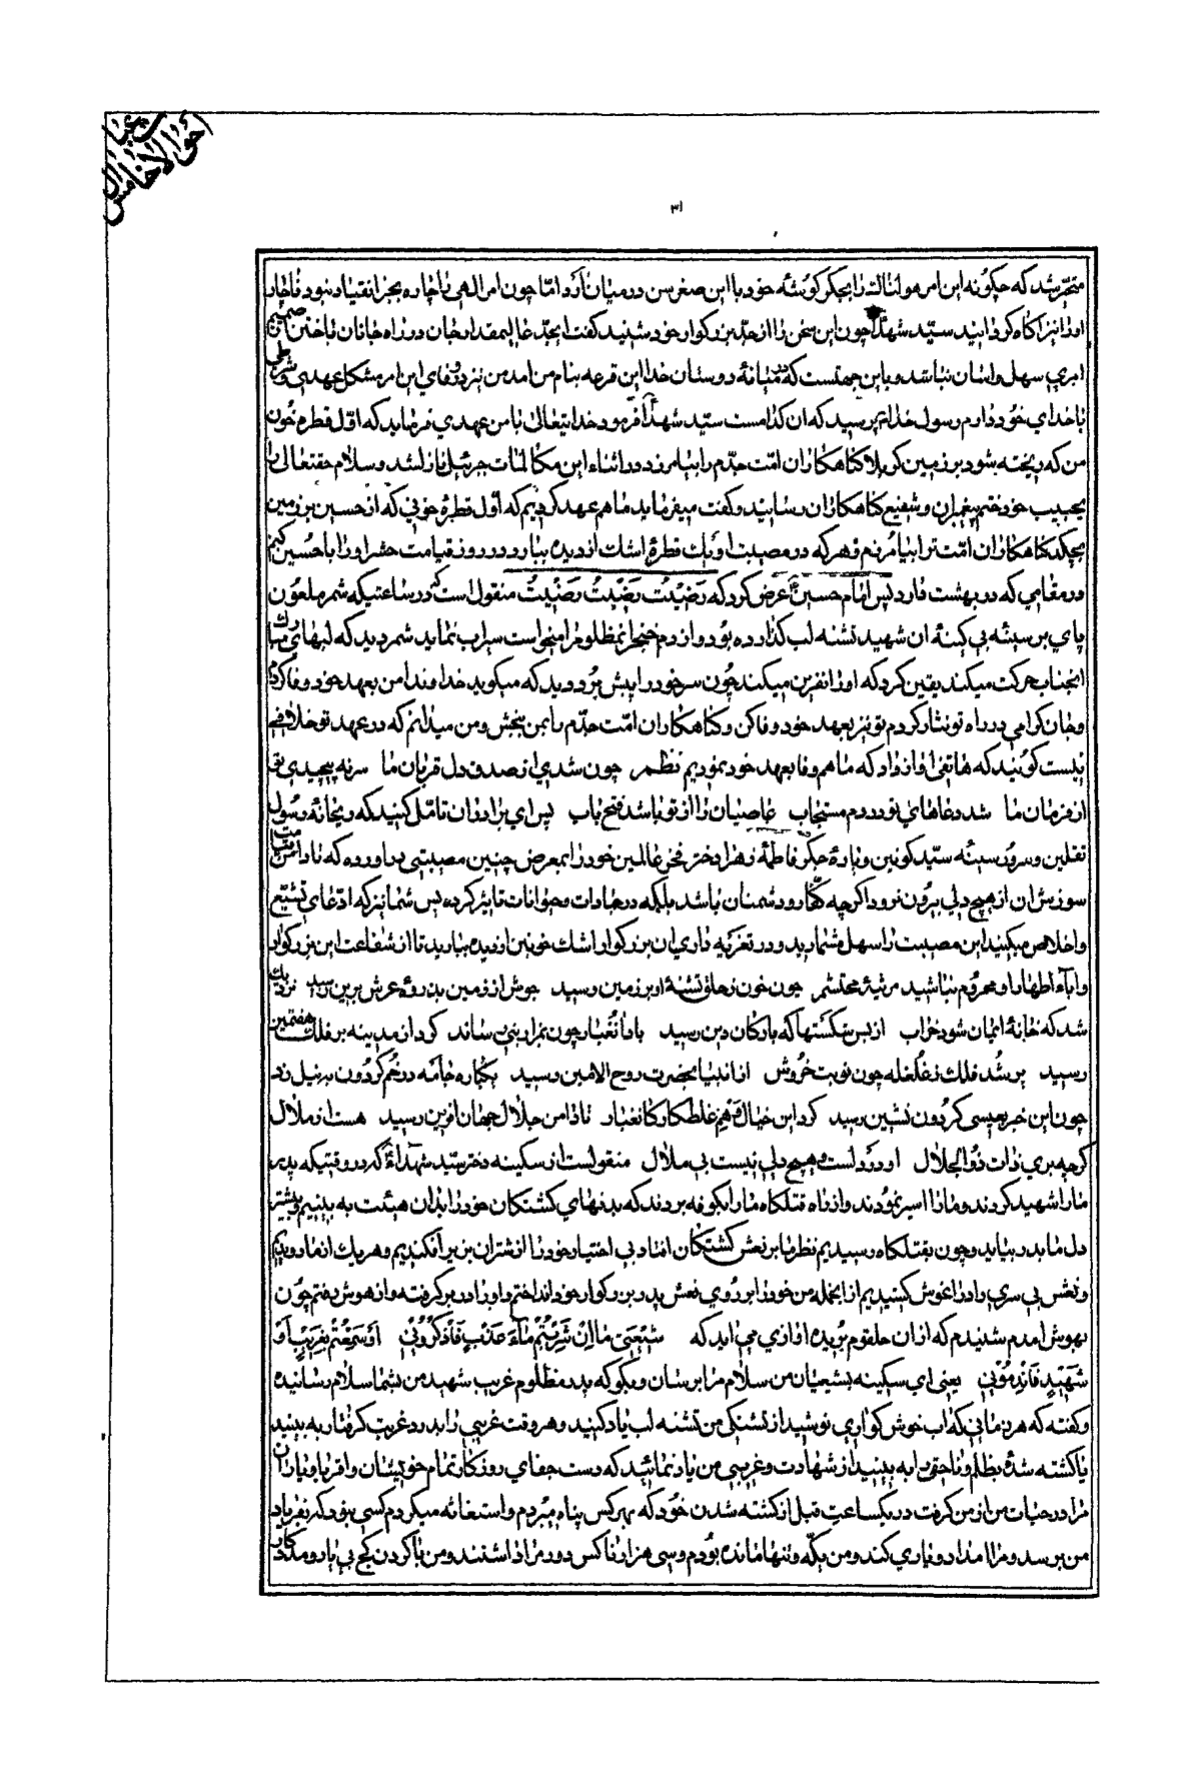 احوالا خامس ال عبا
٣١
متحیر شد که چکونه این امر هولناک را بجکر کوشهٔ خود با این صغر سن در میان ارد اما چون امر الهی ناچاره بجز انقیاد نبود ناچار
او را نیز آکاه کردانید سید شهدا چون این سخن را از جد بزرکوار خود شنید کفت ایجد عالیمقدار جان در راه جانان باختن
امری سهل و اسان نباشد و باین جهتست که در میانهٔ دوستان خدا این قرعه بنام من امد من نیز در وفای این امر مشکل عهدی و شرطی
با خدای خود دارم رسول خدا پرسید که ان کدامست سید شهدا فرمود خدایتعالی با من عهدی فرماید که اول قطره خون
من که ریخته شود بر زمین کربلا کناهکاران امت جدم را بیامرزد در اثناء این مکالمات جبرئیل نازل شد و سلام حقتعالی را
بحبیب خود ختم پیغمبران و شفیع کناهکاران رسانید و کفت میفرماید ما هم عهد کردیم که اول قطرهٔ خونی که از حسین بر زمین
بچکد کناهکاران امت ترا بیامرزم و هر که در مصیبت او یک قطرهٔ اشک از دیده ببارد در روز قیامت حشر او را با حسین کنیم
در مقامی که در بهشت دارد پس امام حسین عرض کرد که رضیت رضیت رضیت منقول است که در ساعتیکه شمر ملعون
پای بر سینهٔ بی کینهٔ ان شهید تشنه لب کذارده بود و از دم خنجر انمظلوم را میخواست سیراب نماید شمر دید که لبهای مبارک
انجناب حرکت میکند یقین کرد که او را نفرین میکند چون سر خود را پیش برد دید که میکوید خداوندا من بعهد خود وفا کردم
و جان کرامی در راه تو نثار کردم تو نیز بعهد خود وفا کن و کناهکاران امت جدم را بمن ببخش و من میدانم که در عهد تو خلافی
نیست کویند که هاتفی اواز داد که ما هم وفا بعهد خود نمودیم نظم چون شدی از صدق دل قربان ما سر نه پیچیدی تو
از فرمان ما شد دعاهای تو در دم مستجاب عاصیان را از تو باشد فتح باب پس ای برادران تامل کنید که ریحانهٔ رسول
ثقلین و سرور سینهٔ سید کونین و پارهٔ جکر فاطمهٔ زهرا دختر فخر عالمین خود را بمعرض چنین مصیبتی دراورده که تا دامن قیامت
سوزش ان از هیچ دلی بیرون نرود اکرچه کفار و دشمنان باشد بلکه در جمادات و حیوانات تاثیر کرده پس شما نیز که ادعای تشیع
و اخلاص میکنید این مصیبت را سهل مشمارید و در تعزیه داری ان بزرکوار اشک خونین از دیده ببارید تا از شفاعت این بزرکوار
و اباء اطهار او محروم نباشید مرثیهٔ محتشم چون خون ز حلق تشنهٔ او بر زمین رسید جوش از زمین بذروهٔ عرش برین رسید نزدیک
شد که خانهٔ ایمان شود خراب از بس شکستها که بارکان دین رسید باد انغبار چون بمزار نبی رساند کرد از مدینه بر فلک هفتمین
رسید پر شد فلک ز غلغله چون نوبت خروش از انبیا بحضرت روح الامین رسید یکباره جامه در خم کردون به نیل زد
چون این خبر بعیسی کردون نشین رسید کرد این خیال وهم غلطکار کانغبار تا دامن جلال جهان افرین رسید هست از ملال
کرچه بری ذات ذو الجلال او در دلست و هیچ دلی نیست بی ملال منقولست از سکینه دختر سید شهدا که در وقتیکه پدر
ما را شهید کردند و ما را اسیر نمودند و از راه قتلکاه ما را بکوفه بردند که بدنهای کشتکان خود را بدان هیئت به بینیم و بیشتر
دل ما بدرد بیاید و چون بقتلکاه رسیدیم نظر ما بر نعش کشتکان افتاد بی اختیار خود را از شتران بزیر افکندیم و هر یک از ما دویدیم
و نعش بی سری را در اغوش کشیدیم از انجمله من خود را بر روی نعش پدر بزرکوار خود انداختم و او را در بر کرفته و از هوش رفتم چون
بهوش امدم شنیدم که از ان حلقوم بریده اوازی می‌اید که شیعتی ما ان شربتم ماء عذب فاذکرونی او سمعتم بغریب او
شهید فاندبونی یعنی ای سکینه بشیعیان من سلام مرا برسان و بکو که پدر مظلوم غریب شهید من بشما سلام رسانیده
و کفته که هر زمانی که اب خوش کواری نوشید از تشنکی من تشنه لب یاد کنید و هر وقت غریبی را بدرد غربت کرفتار به بینید
یا کشته شدهٔ بظلم و ناحق را به بینید از شهادت و غریبی من یاد نمائید که دست جفای روزکار تمام خویشان و اقربا و یاران
مرا در حیات من از من کرفت در یکساعت قبل از کشته شدن خود که بهر کس پناه میبردم و استغاثه میکردم کسی نبود که بفریاد
من برسد و مرا امداد و یاری کند و من یکه و تنها مانده بودم و سی هزار ناکس دور مرا داشتند و من با کردن کج بی یار و مددکار